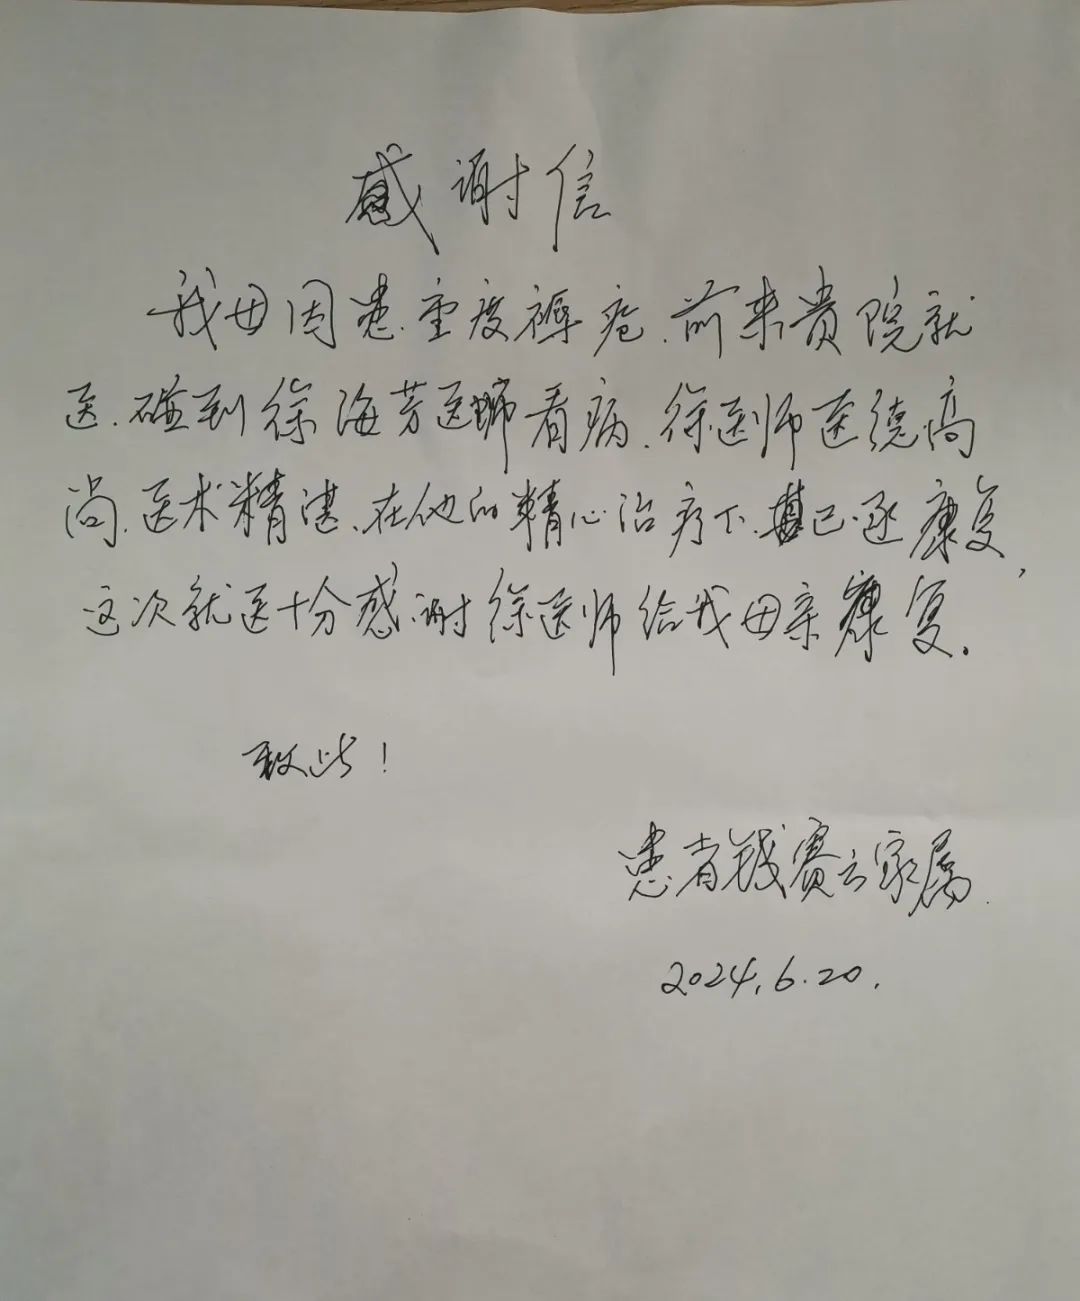 感谢信
我母因患重度褥疮.前来贵院就
医.碰到徐海芳医师看病.徐医师医德高
尚.医术精湛.在他的精心治疗下.其已逐康复,
这次就医十分感谢徐医师给我母亲康复.
致此!
患者钱赛云家属.
2024.6.20.